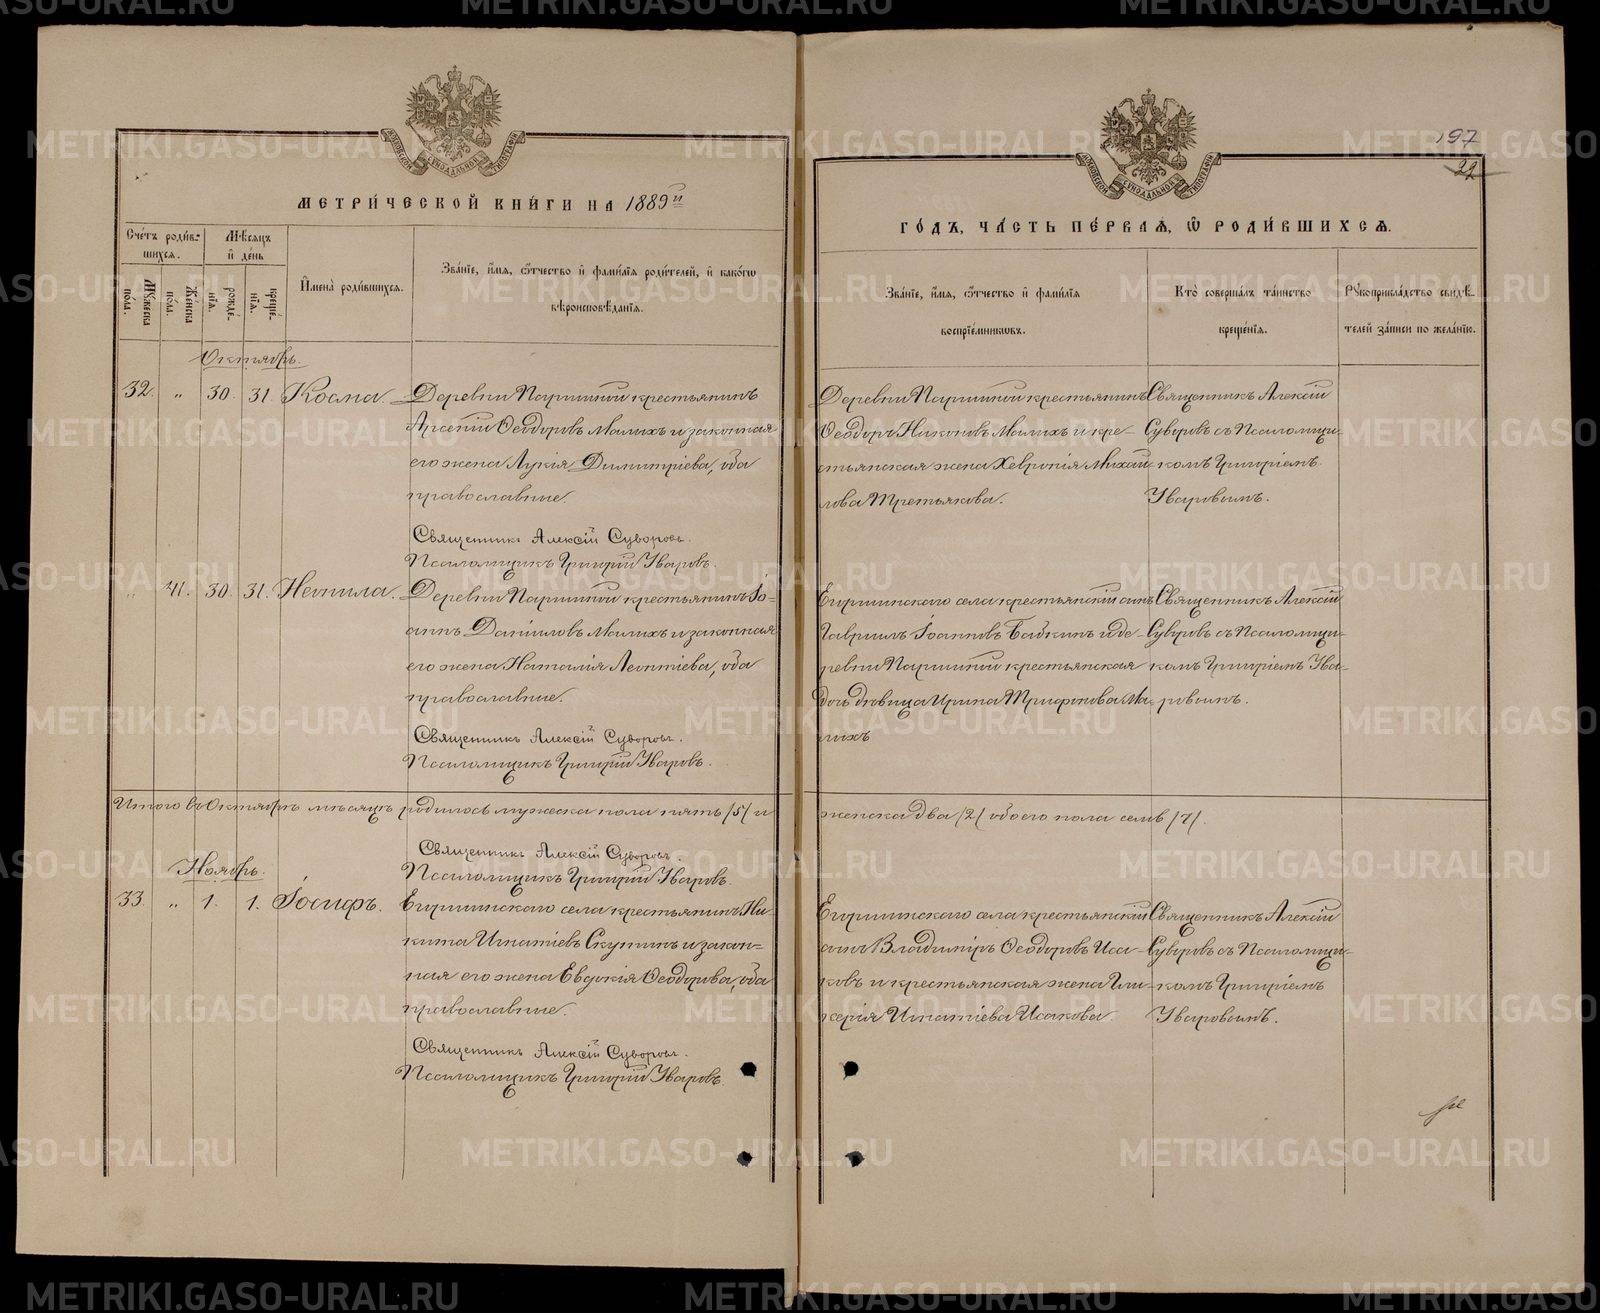 METRIKI.GASO-URAL.RU
197
22
МОСКОВСКОЙ СУНОДАЛЬНОЙ ТИПОГРАФІИ
МЕТРИ́ЧЕСКОЙ КНИ́ГИ НА 1889й
Сче́тъ роди́в-
шихся.
Му́жеска по́ла.
Же́нска по́ла.
Мѣ́сяцъ
и҆ де́нь
рожде́нїя.
креще́нїя.
И҆мена̀ роди́вшихся.
Зва́нїе, и҆́мя, ѻ҆́тчество и҆ фами́лїя роди́телей, и҆ како́гѡ
вѣроисповѣ́данїя.
Октябрь.
32. „ 30. 31. Косма. Деревни Паршиной крестьянинъ
Арсеній Ѳеодоровъ Малихъ и законная
его жена Лукія Димитріева, оба
православные.
Священникъ Алексій Суворовъ.
Псаломщикъ Григорій Уваровъ.
„ 41. 30. 31. Неонила. Деревни Паршиной крестьянинъ Іо-
аннъ Даниловъ Малихъ и законная
его жена Наталія Леонтіева, оба
православные.
Священникъ Алексій Суворовъ.
Псаломщикъ Григорій Уваровъ.
Итого въ Октябрѣ мѣсяцѣ родилось мужеска пола пять /5/ и
Священникъ Алексій Суворовъ.
Псаломщикъ Григорій Уваровъ.
Ноябрь.
33. „ 1. 1. Іосифъ. Егоршинскаго села крестьянинъ Ни-
кита Игнатіевъ Скутинъ и закон-
ная его жена Евдокія Ѳеодорова, оба
православные.
Священникъ Алексій Суворовъ.
Псаломщикъ Григорій Уваровъ.
МОСКОВСКОЙ СУНОДАЛЬНОЙ ТИПОГРАФІИ
ГО́ДЪ, ЧА́СТЬ ПЕ́РВАЯ, Ѡ҆ РОДИ́ВШИХСЯ.
Зва́нїе, и҆́мя, ѻ҆́тчество и҆ фами́лїя
воспрїе́мниковъ.
Кто̀ соверша́лъ та́инство
креще́нїя.
Рꙋкоприкла́дство свидѣ́-
телей за́писи по жела́нїю.
Деревни Паршиной крестьянинъ
Ѳеодоръ Никоновъ Малихъ и кре-
стьянская жена Хевронія Михаи-
лова Третьякова.
Священникъ Алексій
Суворовъ съ Псаломщи-
комъ Григоріемъ
Уваровымъ.
Егоршинскаго села крестьянскій сынъ
Гавріилъ Іоанновъ Бабкинъ и де-
ревни Паршиной крестьянская
дочь дѣвица Ирина Трифонова Ма-
лихъ
Священникъ Алексій
Суворовъ съ Псаломщи-
комъ Григоріемъ Ува-
ровымъ.
женска два /2/ обоего пола семь /7/.
Егоршинскаго села крестьянскій
сынъ Владиміръ Ѳеодоровъ Иса-
ковъ и крестьянская жена Гли-
керія Игнатіева Исакова.
Священникъ Алексій
Суворовъ съ Псаломщи-
комъ Григоріемъ
Уваровымъ.